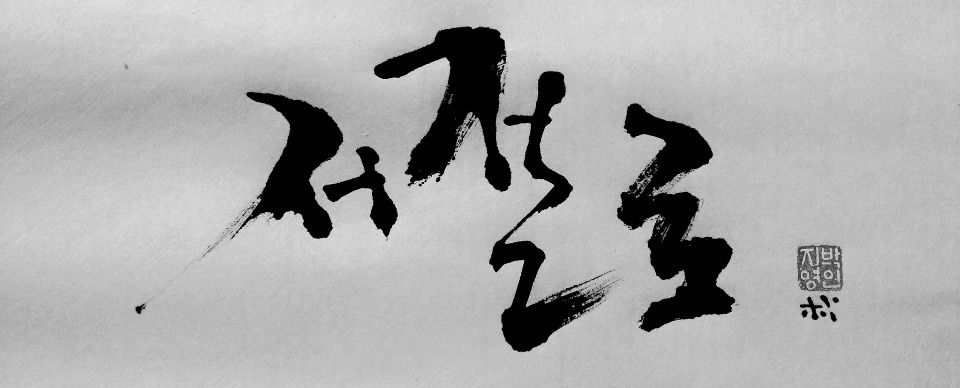 저절로
지박
영인